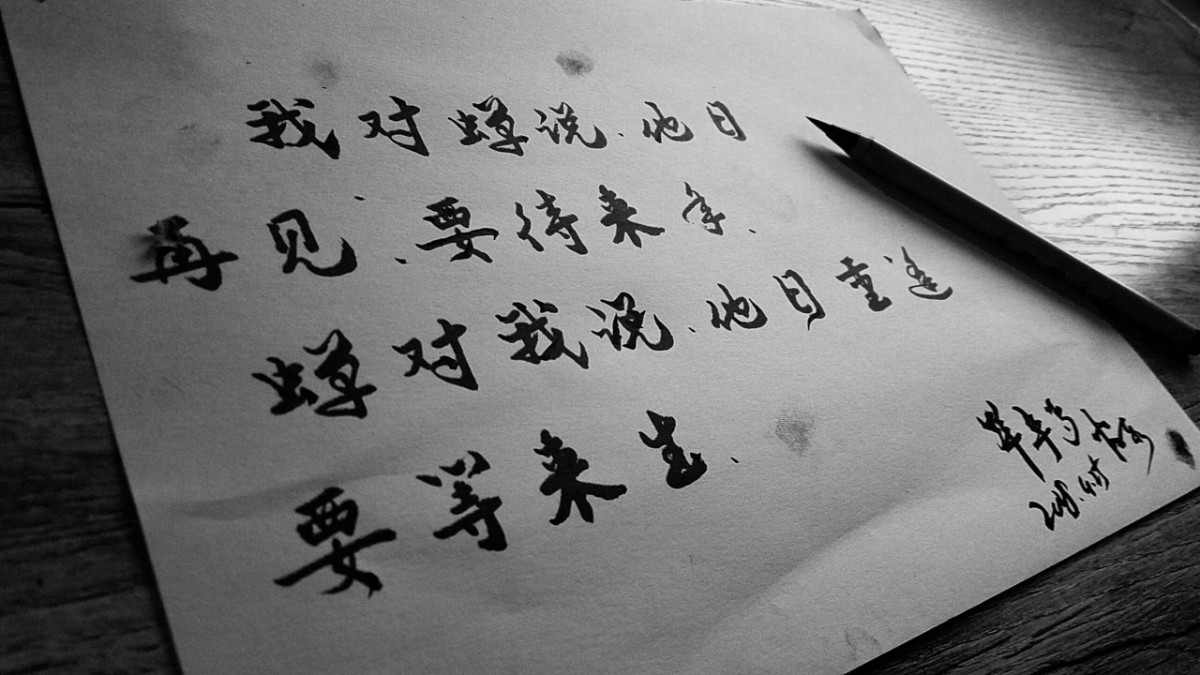 我对蝉说、他日
再见、要待来年、
蝉对我说、他日重逢
要等来生、